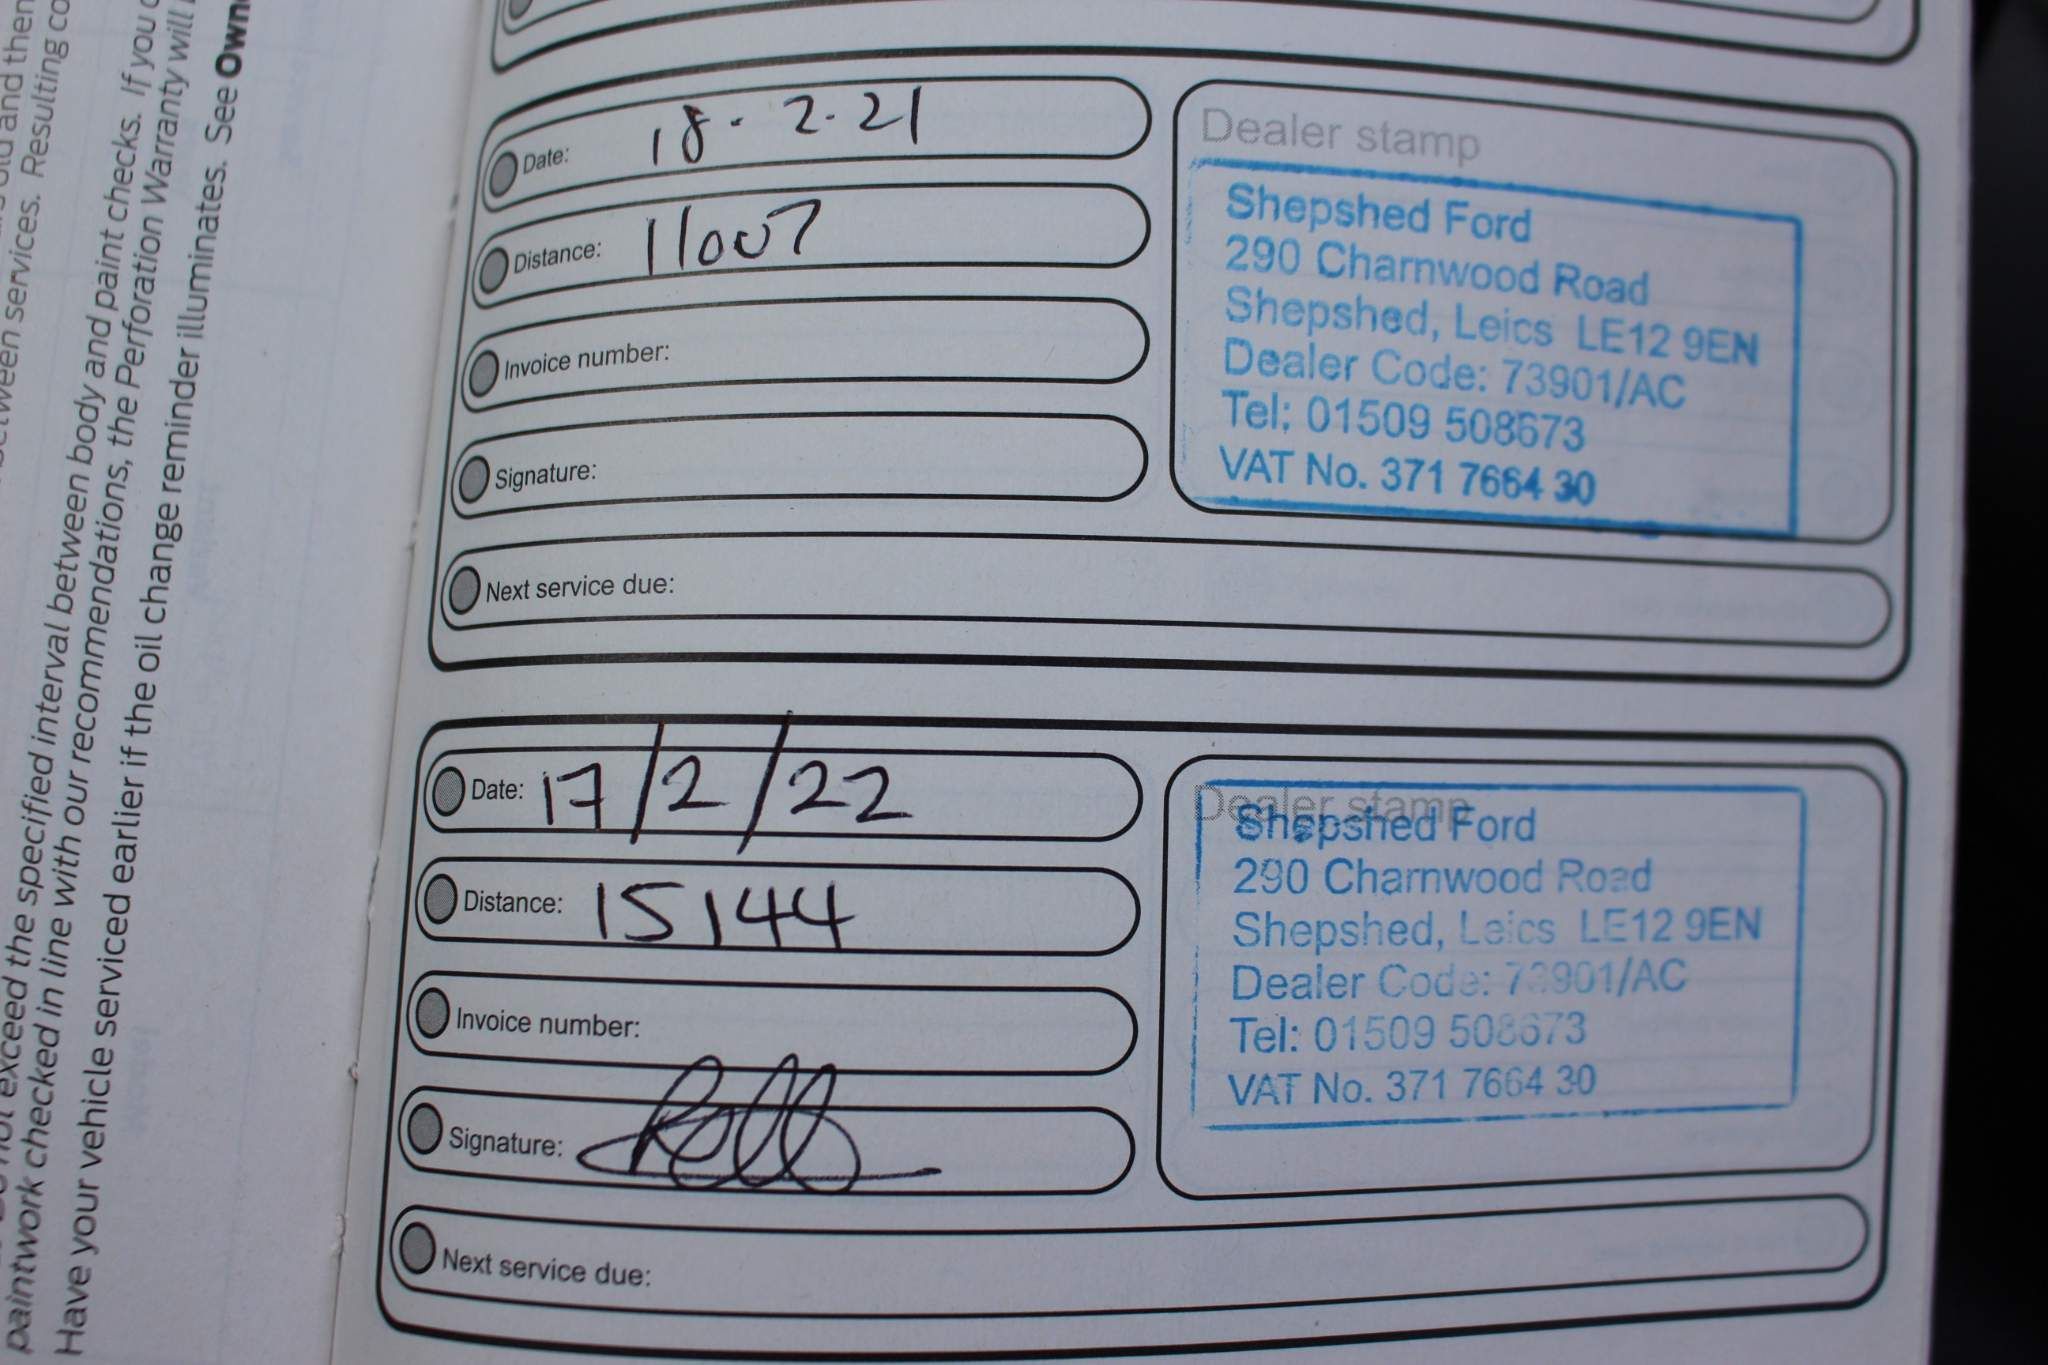 between services. Resulting
paintwork checked in line with our recommendations, the Perforation Warranty will
not exceed the specified interval between body and paint checks. If you
Have your vehicle serviced earlier if the oil change reminder illuminates. See
Date: 18.2.21
Distance: 11007
Invoice number:
Signature:
Next service due:
Dealer stamp
Shepshed Ford
290 Charnwood Road
Shepshed, Leics LE12 9EN
Dealer Code: 73901/AC
Tel: 01509 508673
VAT No. 371 7664 30
Date: 17/2/22
Distance: 15144
Invoice number:
Signature:
Next service due:
Dealer stamp
Shepshed Ford
290 Charnwood Road
Shepshed, Leics LE12 9EN
Dealer Code: 73901/AC
Tel: 01509 508673
VAT No. 371 7664 30